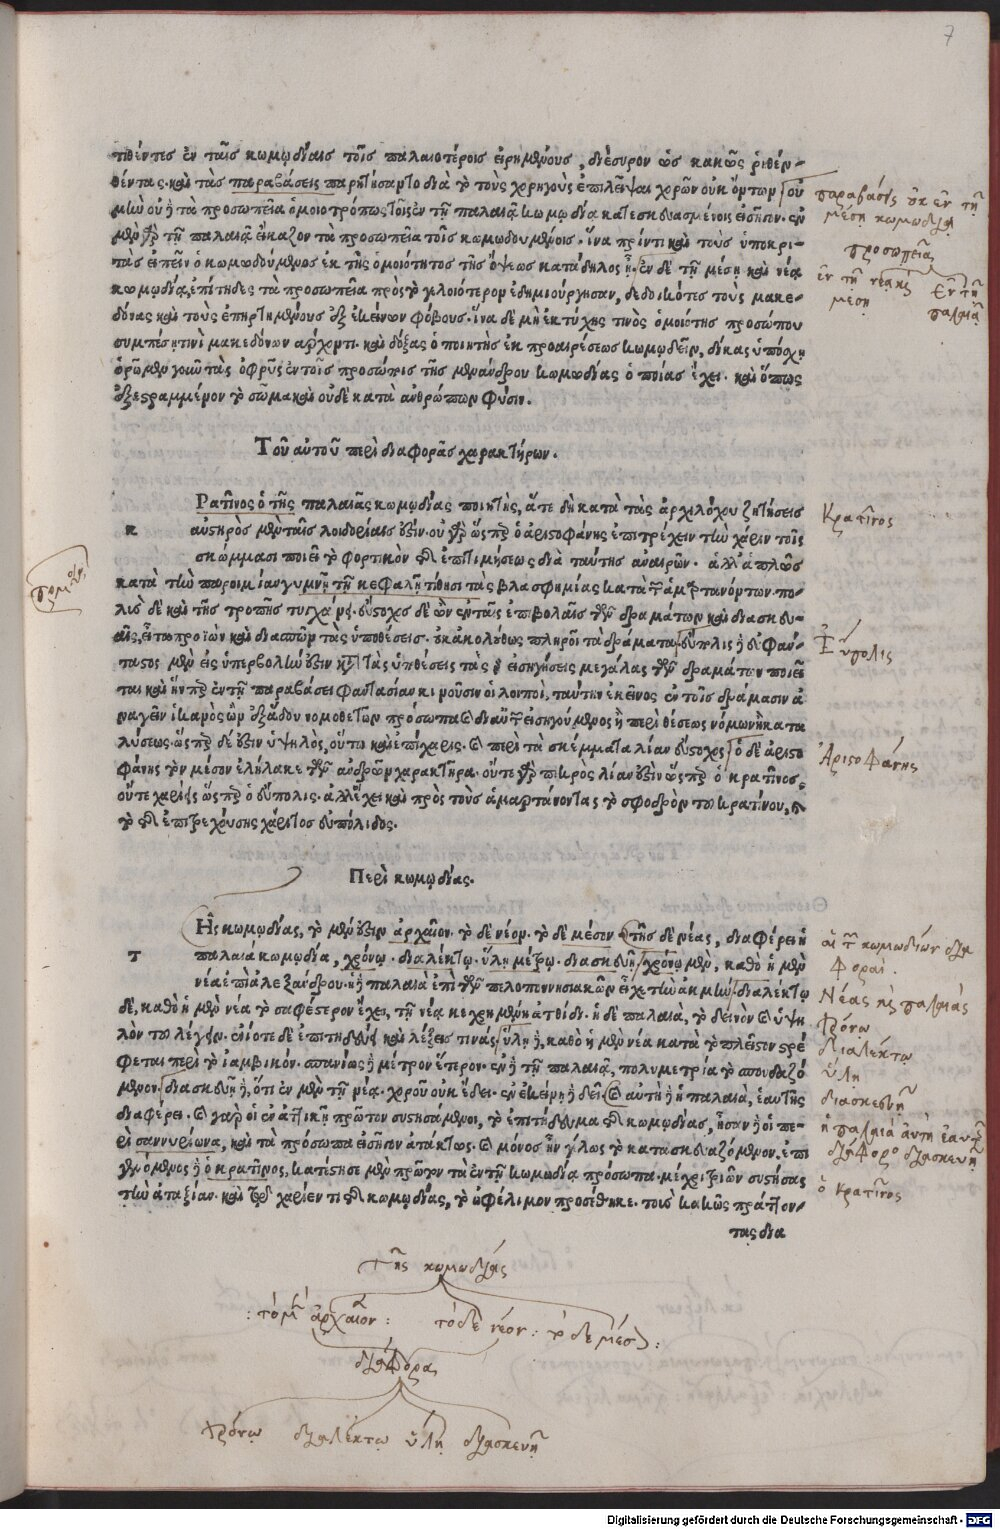 7
τιθέντες ἐν ταῖς κωμῳδίαις τοῖς παλαιοτέροις εἰρημένους, διέσυρον ὡς κακῶς ῥηθέν-
θέντας. καὶ τὰς παραβάσεις παρῃτήσαντο διὰ τὸ τοὺς χορηγοὺς ἐπιλεῖψαι χορῶν οὐκ ὄντων
τῇ παλαιᾷ εἴκαζον τὰ προσωπεῖα τοῖς κωμῳδουμένοις. ἵνα πρίν τι καὶ τοὺς ὑποκρι-
τὰς εἰπεῖν ὁ κωμῳδούμενος ἐκ τῆς ὁμοιότητος τῆς ὄψεως κατάδηλος ᾖ. ἐν δὲ τῇ μέσῃ καὶ νέᾳ
κωμῳδίᾳ, ἐπίτηδες τὰ προσωπεῖα πρὸς τὸ γελοιότερον ἐδημιούργησαν, δεδοικότες τοὺς μακε-
δόνας καὶ τοὺς ἐπηρτημένους ἐξ ἐκείνων φόβους. ἵνα δὲ μὴ ἐκ τύχης τινὸς ὁμοιότης προσώπου
συμπέσῃ τινὶ μακεδόνων ἄρχοντι. καὶ δόξας ὁ ποιητὴς ἐκ προαιρέσεως κωμῳδεῖν, δίκας ὑπόσχῃ
ὁρῶμεν γοῦν τὰς ὀφρῦς ἐν τοῖς προσώποις τῆς μενάνδρου κωμῳδίας ὁποίας ἔχει. καὶ ὅπως
ἐξεστραμμένον τὸ σῶμα καὶ οὐδὲ κατὰ ἀνθρώπων φύσιν.
Τοῦ αὐτοῦ περὶ διαφορᾶς χαρακτήρων.
Ρατῖνος ὁ τῆς παλαιᾶς κωμῳδίας ποιητὴς, ἅτε δὴ κατὰ τὰς ἀρχιλόχου ζητήσεις
κ αὐστηρὸς μὲν ταῖς λοιδορίαις ἐστίν. οὐ γὰρ ὥσπερ ὁ ἀριστοφάνης ἐπιτρέχειν τὴν χάριν τοῖς
σκώμμασι ποιεῖ τὸ φορτικὸν τῆς ἐπιτιμήσεως διὰ ταύτης ἀναιρῶν. ἀλλ᾽ ἁπλῶς
κατὰ τὴν παροιμίαν γυμνῇ τῇ κεφαλῇ τίθησι τὰς βλασφημίας κατὰ τῶν ἁμαρτανόντων. πο-
λὺς δὲ καὶ τῆς τροπῆς τυγχάνει. εὔστοχος δὲ ὢν ἐν ταῖς ἐπιβολαῖς τῶν δραμάτων καὶ διασκευ-
αῖς, εἶτα προϊὼν καὶ διασπῶν τὰς ὑποθέσεις. οὐκ ἀκολούθως πληροῖ τὰ δράματα. εὔπολις δὲ εὐφάν-
ταστος μὲν εἰς ὑπερβολὴν ἐστὶν κατὰ τὰς ὑποθέσεις τὰς γὰρ εἰσηγήσεις μεγάλας τῶν δραμάτων ποιεῖ
ται καὶ ἥνπερ ἐν τῇ παραβάσει φαντασίαν κινοῦσιν οἱ λοιποὶ, ταύτην ἐκεῖνος ἐν τοῖς δράμασιν ἀ
ναγεῖν ἱκανὸς ὢν ἐξ ᾅδου νομοθετῶν πρόσωπα καὶ δι᾽ αὐτῶν εἰσηγούμενος ἢ περὶ θέσεως νόμων ἢ κατα
λύσεως. ὥσπερ δέ ἐστιν ὑψηλὸς, οὕτω καὶ ἐπίχαρις. καὶ περὶ τὰ σκώμματα λίαν εὔστοχος. ὁ δὲ ἀριστο
φάνης τὸν μέσον ἐλήλακε τῶν ἀνδρῶν χαρακτῆρα. οὔτε γὰρ πικρὸς λίαν ἐστὶν ὥσπερ ὁ κρατῖνος,
οὔτε χαρίεις ὥσπερ ὁ εὔπολις. ἀλλ᾽ ἔχει καὶ πρὸς τοὺς ἁμαρτάνοντας τὸ σφοδρὸν τοῦ κρατίνου, καὶ
τὸ τῆς ἐπιτρεχούσης χάριτος εὐπόλιδος.
Περὶ κωμῳδίας.
Η͂ς κωμῳδίας, τὸ μέν ἐστιν ἀρχαῖον. τὸ δὲ νέον. τὸ δὲ μέσον. τῆς δὲ νέας, διαφέρει ἡ
τ παλαιὰ κωμῳδία, χρόνῳ. διαλέκτῳ. ὕλῃ μέτρῳ. διασκευῇ. χρόνῳ μὲν, καθὸ ἡ μὲν
νέα ἐπὶ ἀλεξάνδρου. ἡ δὲ παλαιὰ ἐπὶ τῶν πελοποννησιακῶν εἶχε τὴν ἀκμήν. διαλέκτῳ
δὲ, καθὸ ἡ μὲν νέα τὸ σαφέστερον ἔχει, τῇ νέᾳ κεχρημένη ἀτθίδι. ἡ δὲ παλαιὰ, τὸ δεινὸν καὶ ὑψη
λὸν τοῦ λόγου. ἐνίοτε δὲ ἐπιτηδεύει καὶ λέξεις τινάς. ὕλῃ δὲ, καθὸ ἡ μὲν νέα κατὰ τὸ πλεῖστον στρέ
φεται περὶ τὸ ἰαμβικόν. σπανίως δὲ μέτρον ἕτερον. ἐν δὲ τῇ παλαιᾷ, πολυμετρία τὸ σπουδαζό
μενον. διασκευῇ δὲ, ὅτι ἐν μὲν τῇ νέᾳ. χοροῦ οὐκ ἔδει. ἐν ἐκείνῃ δὲ δεῖ. καὶ αὐτὴ δὲ ἡ παλαιὰ, ἑαυτῆς
διαφέρει. καὶ γὰρ οἱ ἐν ἀττικῇ πρῶτον συστησάμενοι, τὸ ἐπιτήδευμα τῆς κωμῳδίας, ἦσαν δὲ οἱ πε-
ρὶ σαννυρίωνα, καὶ τὰ πρόσωπα εἰσῆγον ἀτάκτως. καὶ μόνος ἦν γέλως τὸ κατασκευαζόμενον. ἐπι
γενόμενος δὲ ὁ κρατῖνος, κατέστησε μὲν πρῶτον τὰ ἐν τῇ κωμῳδίᾳ πρόσωπα. μέχρι τριῶν συστήσας
τὴν ἀταξίαν. καὶ τῷ χαρίεντι τῆς κωμῳδίας, τὸ ὠφέλιμον προσέθηκε. τοὺς κακῶς πράττον-
τας δια
παραβάσεις οὐκ ἐν τῇ
μέσῃ κωμωδίᾳ
προσωπεῖα
ἐν τῇ νέᾳ καὶ
μέσῃ
ἐν τῇ
παλαιᾷ
Κρατῖνος
Εὔπολις
Ἀριστοφάνης
αἱ τῶν κωμωδιῶν δια
φοραί.
Νέας καὶ παλαιᾶς
χρόνω
διαλέκτω
ὕλη
διασκευῇ
ἡ παλαιὰ αὐτὴ ἑαυτῆς
ὁ κρατῖνος
τῆς κωμωδίας
: τὸ μὲν ἀρχαῖον : τὸ δὲ νέον : τὸ δὲ μέσον :
διάφορα
χρόνῳ διαλέκτῳ ὕλῃ διασκευῇ
Digitalisierung gefördert durch die Deutsche Forschungsgemeinschaft - DFG